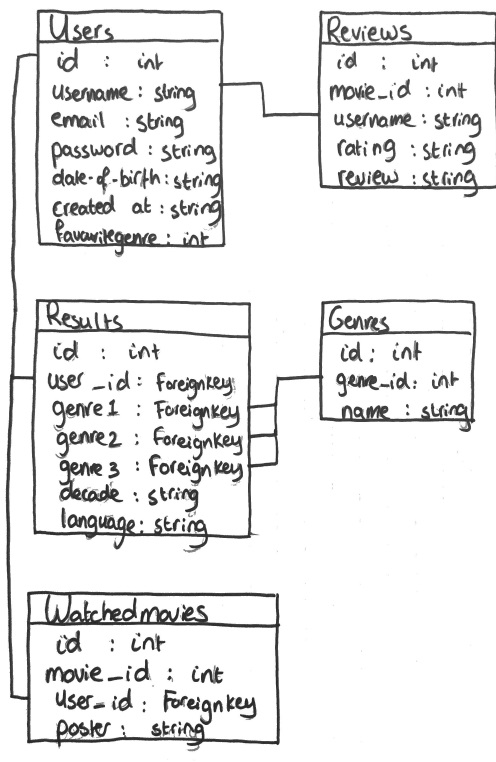 Users
id : int
username : string
email : string
password : string
date-of-birth : string
created at : string
favouritegenre : int
Reviews
id : int
movie_id : int
username : string
rating : string
review : string
Results
id : int
user_id : Foreignkey
genre1 : Foreignkey
genre2 : Foreignkey
genre 3 : Foreignkey
decade : string
language : string
Genres
id : int
genre_id : int
name : string
Watchedmovies
id : int
movie_id : int
user_id : Foreignkey
poster : string